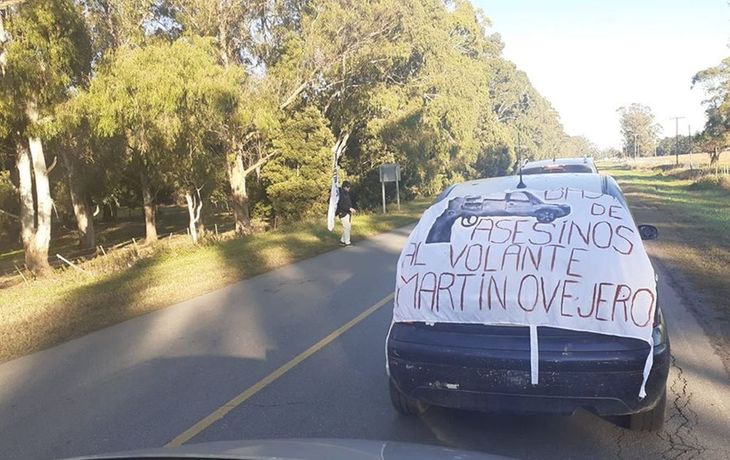 BASTA
DE
ASESINOS
AL VOLANTE
MARTÍN OVEJERO